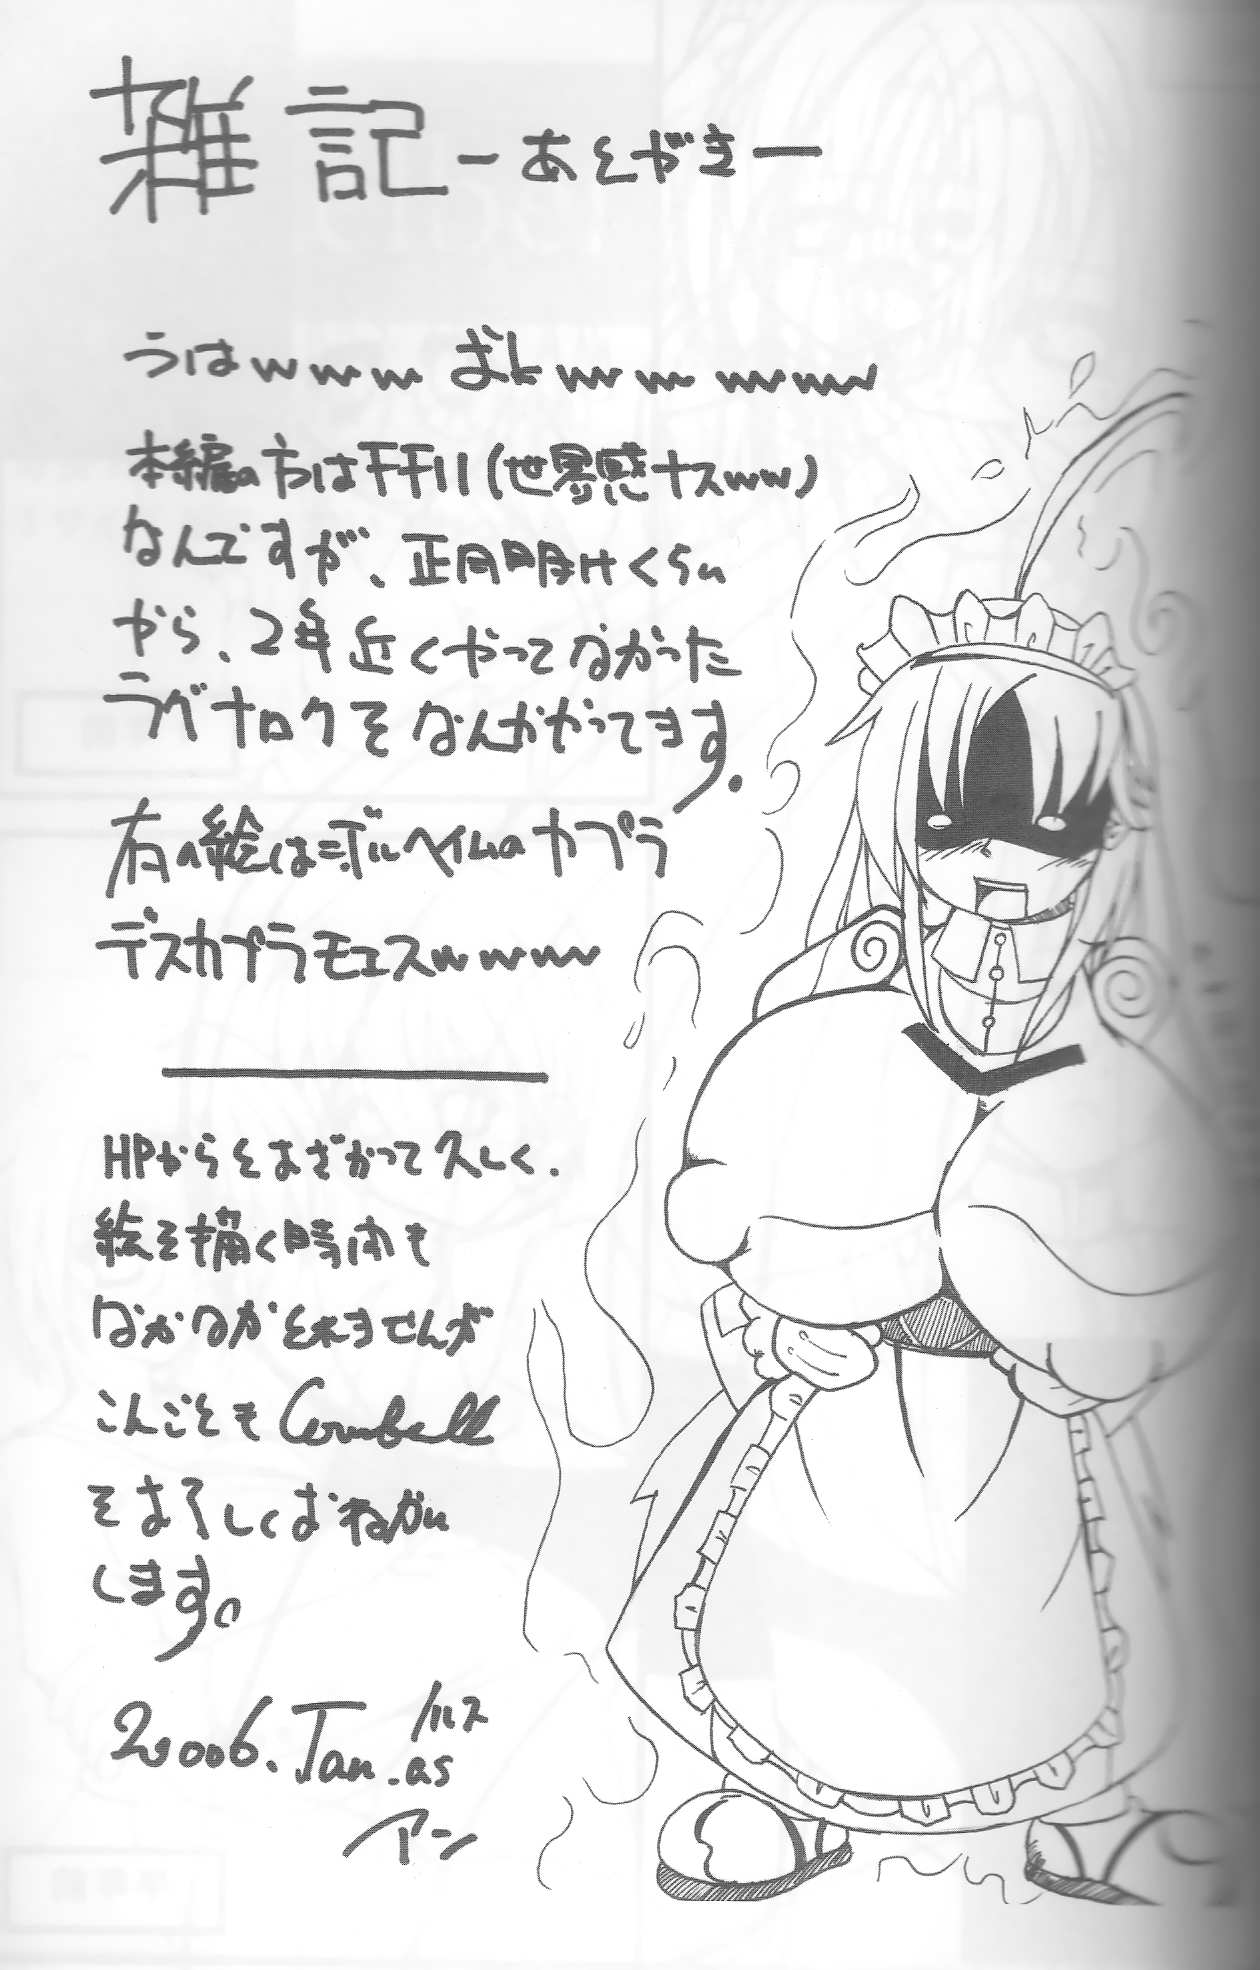 雑記 ーあとがきー
うはwww おkwwwwwww
本編の方は千千川(世界感ナスww)
なんですが、正月明けくらい
から、2年近くやってなかった
ラグナロクをなんかやってます。
右の絵はニブルヘイムのカプラ
デスカプラモエスwwww
HPからとおざかって久しく、
絵を描く時間も
なかなかとれませんが
こんごとも
をよろしくおねがい
します。
2006. Jan.
アン